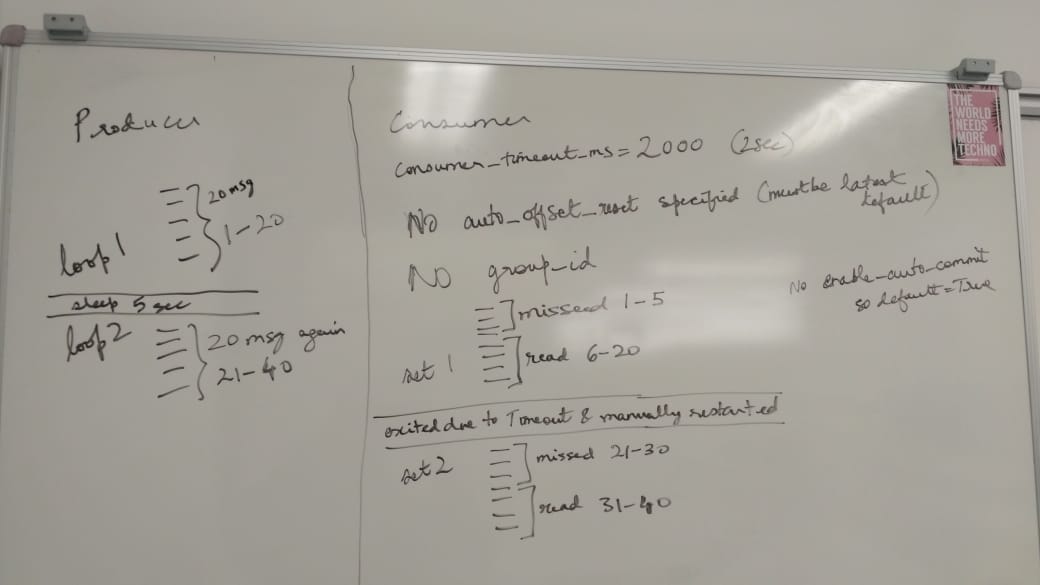 Producer
20 msg
1-20
loop 1
sleep 5 sec
loop 2
20 msg again
21-40
Consumer
consumer_timeout_ms = 2000 (2sec)
No auto_offset_reset specified (must be latest
default)
No group_id
No enable_auto_commit
so default = True
missed 1-5
set 1
read 6-20
exited due to Timeout & manually restarted
set 2
missed 21-30
read 31-40
THE
WORLD
NEEDS
MORE
TECHNO